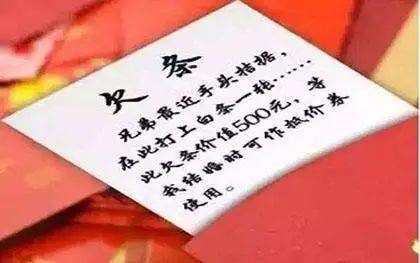 欠条
兄弟最近手头拮据，
在此打上白条一张……
此欠条价值500元，等
我结婚时可作抵价券
使用。